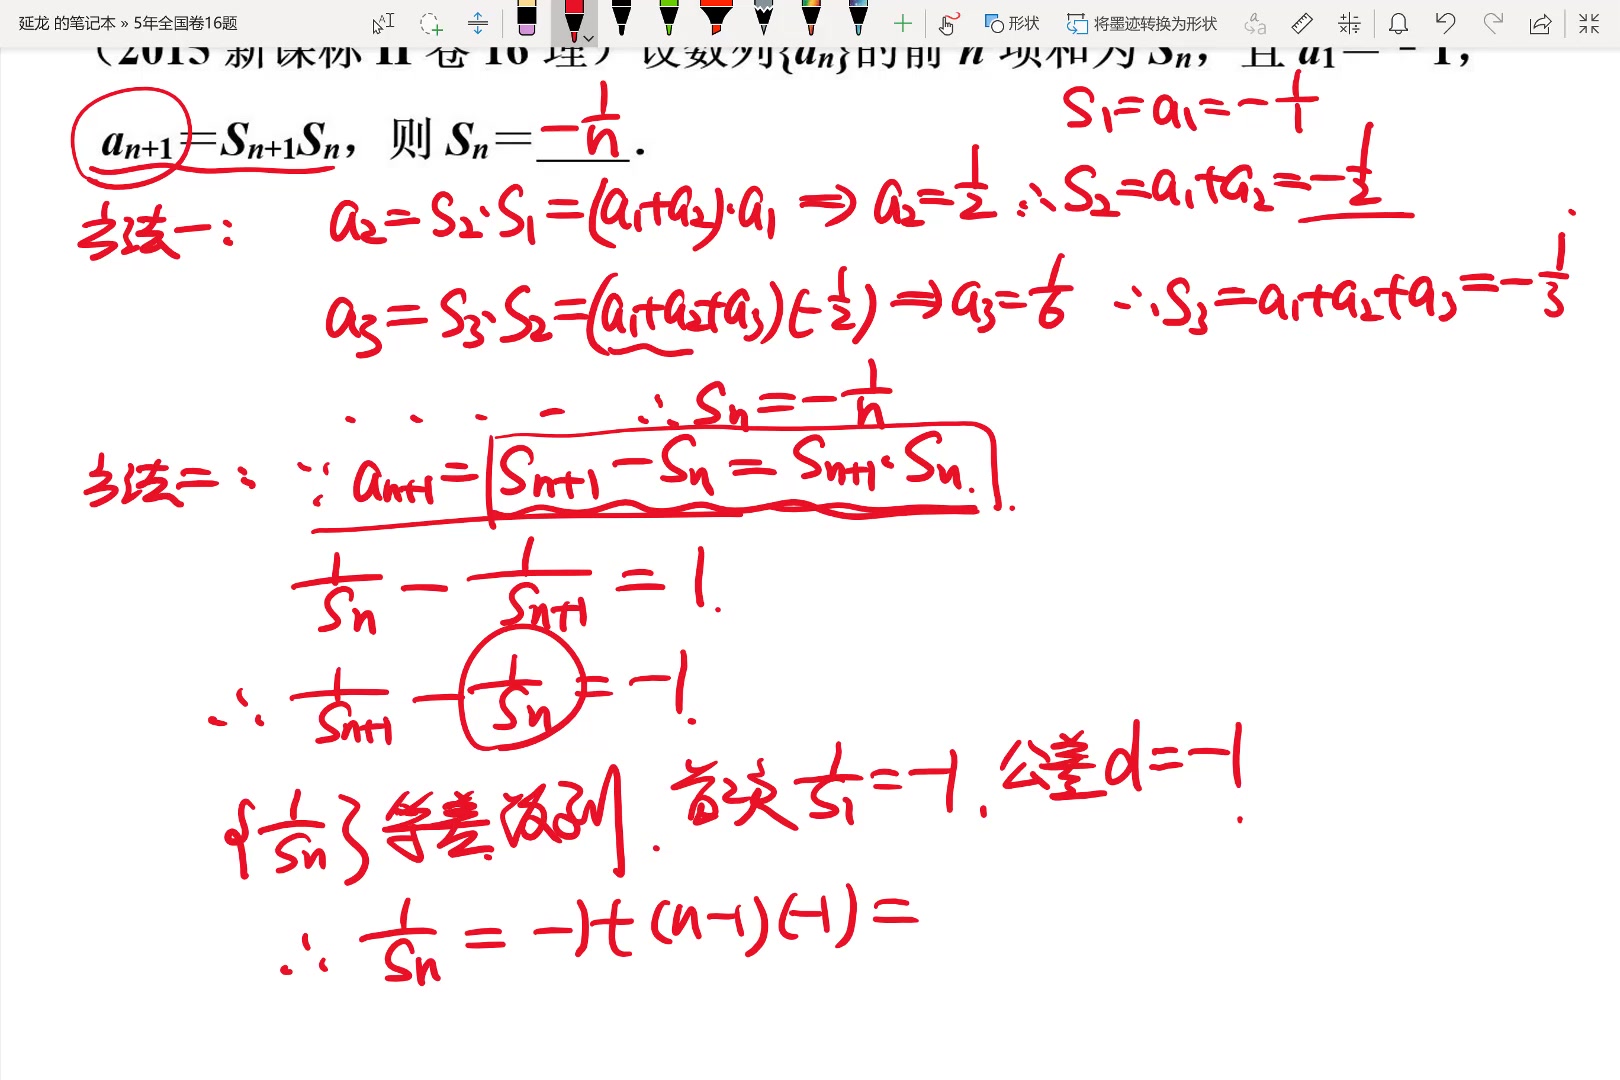 延龙 的笔记本 » 5年全国卷16题
形状
将墨迹转换为形状
(2015 新课标 II 卷 16 理) 设数列{aₙ}的前 n 项和为 Sₙ, 且 a₁=-1,
aₙ₊₁=Sₙ₊₁Sₙ, 则 Sₙ= -1/n .
S₁=a₁=-1/1
方法一: a₂=S₂·S₁=(a₁+a₂)·a₁ ⇒ a₂=1/2 ∴S₂=a₁+a₂=-1/2
a₃=S₃·S₂=(a₁+a₂+a₃)(-1/2) ⇒ a₃=1/6 ∴S₃=a₁+a₂+a₃=-1/3
.... ∴Sₙ=-1/n
方法二: ∵aₙ₊₁=Sₙ₊₁-Sₙ=Sₙ₊₁·Sₙ.
1/Sₙ - 1/Sₙ₊₁ = 1.
∴ 1/Sₙ₊₁ - 1/Sₙ = -1.
{1/Sₙ}等差数列. 首项 1/S₁=-1. 公差d=-1.
∴ 1/Sₙ = -1+(n-1)(-1)=